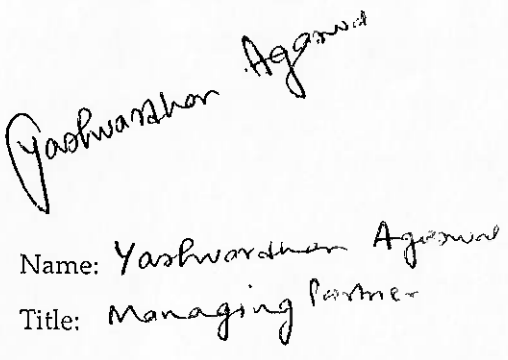 Yashvardhan Agarwal
Name: Yashvardhan Agarwal
Title: Managing Partner